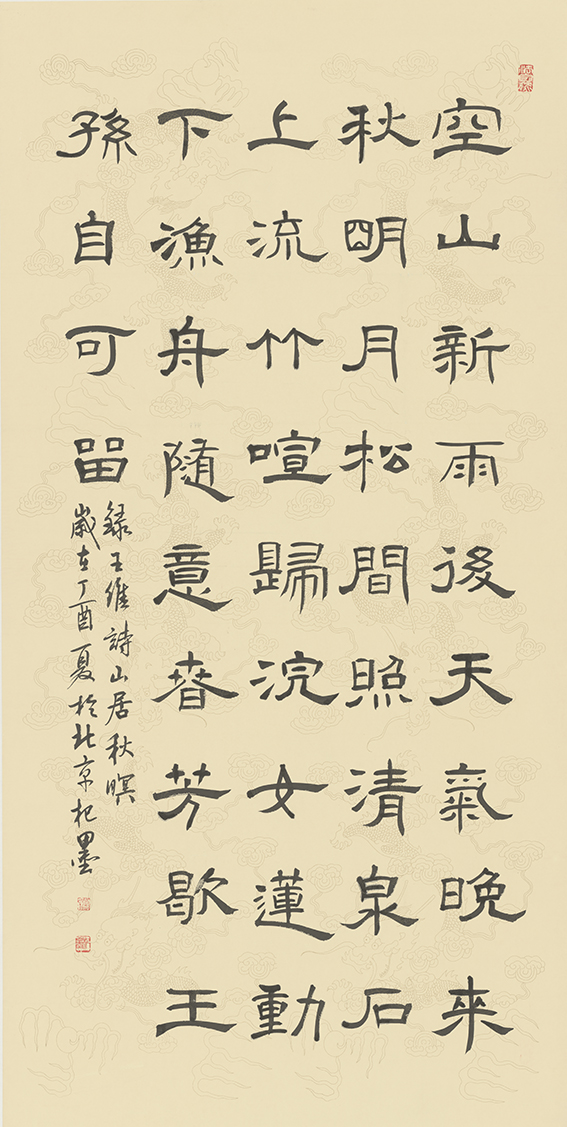 空山新雨後天氣晚來
秋明月松間照清泉石
上流竹喧歸浣女蓮動
下漁舟隨意春芳歇王
孫自可留
錄王維詩山居秋暝
歲在丁酉夏於北京杞墨